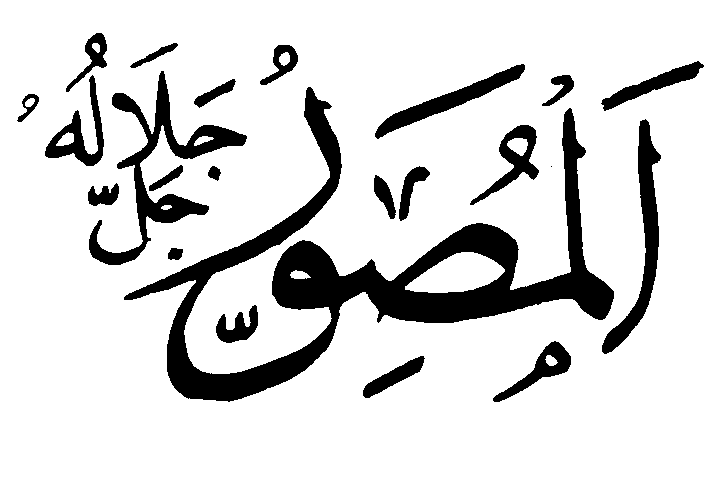 اَلْمُصَوِّرُ
جَلَّ جَلَالُهُ